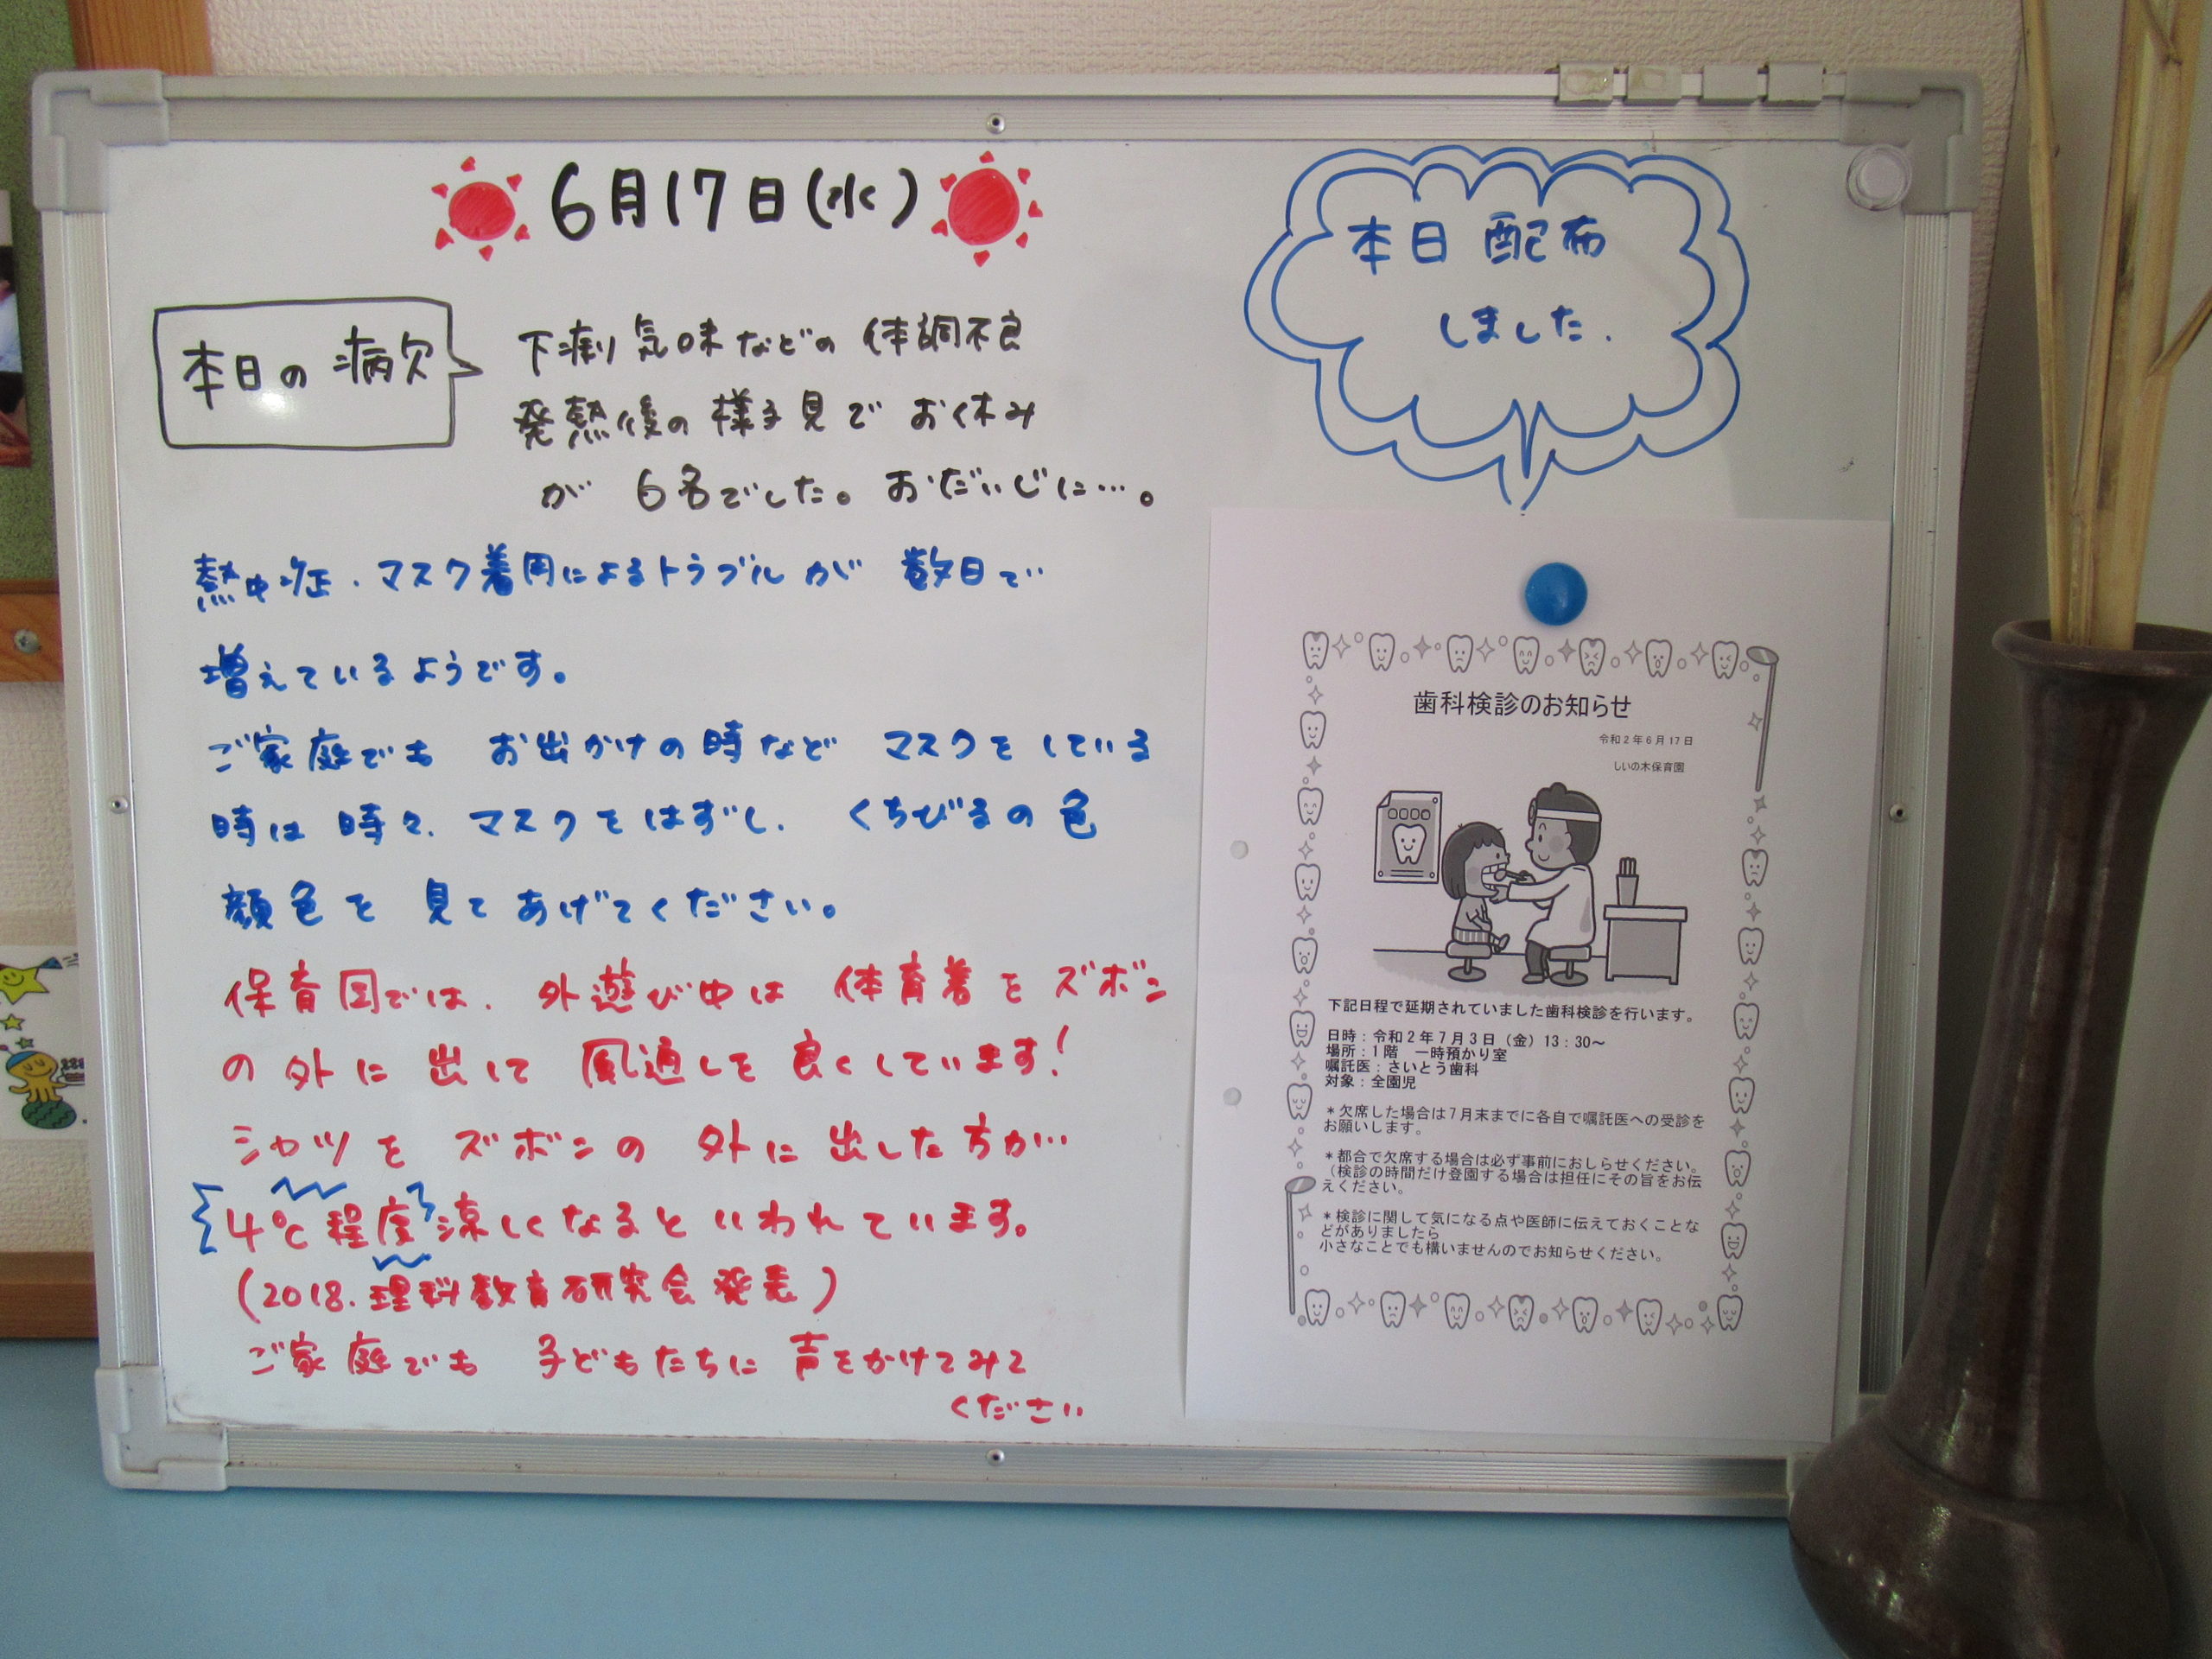 6月17日(水)
本日の病欠
下痢気味などの体調不良
発熱後の様子見でお休み
が 6名でした。おだいじに…。
熱中症、マスク着用によるトラブルが 数日で
増えているようです。
ご家庭でも お出かけの時など マスクをしている
時は 時々、マスクをはずし、 くちびるの色
顔色を 見てあげてください。
保育園では、外遊び中は 体育着を ズボン
の外に 出して 風通しを 良くしています!
シャツを ズボンの 外に 出した方が…
4℃程度 涼しくなるといわれています。
(2018.理科教育研究会発表)
ご家庭でも 子どもたちに 声をかけてみて
ください
本日 配布
しました.
歯科検診のお知らせ
令和2年6月17日
しいの木保育園
下記日程で延期されていました歯科検診を行います。
日時：令和2年7月3日（金）13：30～
場所：1階 一時預かり室
嘱託医：さいとう歯科
対象：全園児
＊欠席した場合は7月末までに各自で嘱託医への受診を
お願いします。
＊都合で欠席する場合は必ず事前におしらせください。
（検診の時間だけ登園する場合は担任にその旨をお伝
えください。
＊検診に関して気になる点や医師に伝えておくことな
どがありましたら
小さなことでも構いませんのでお知らせください。